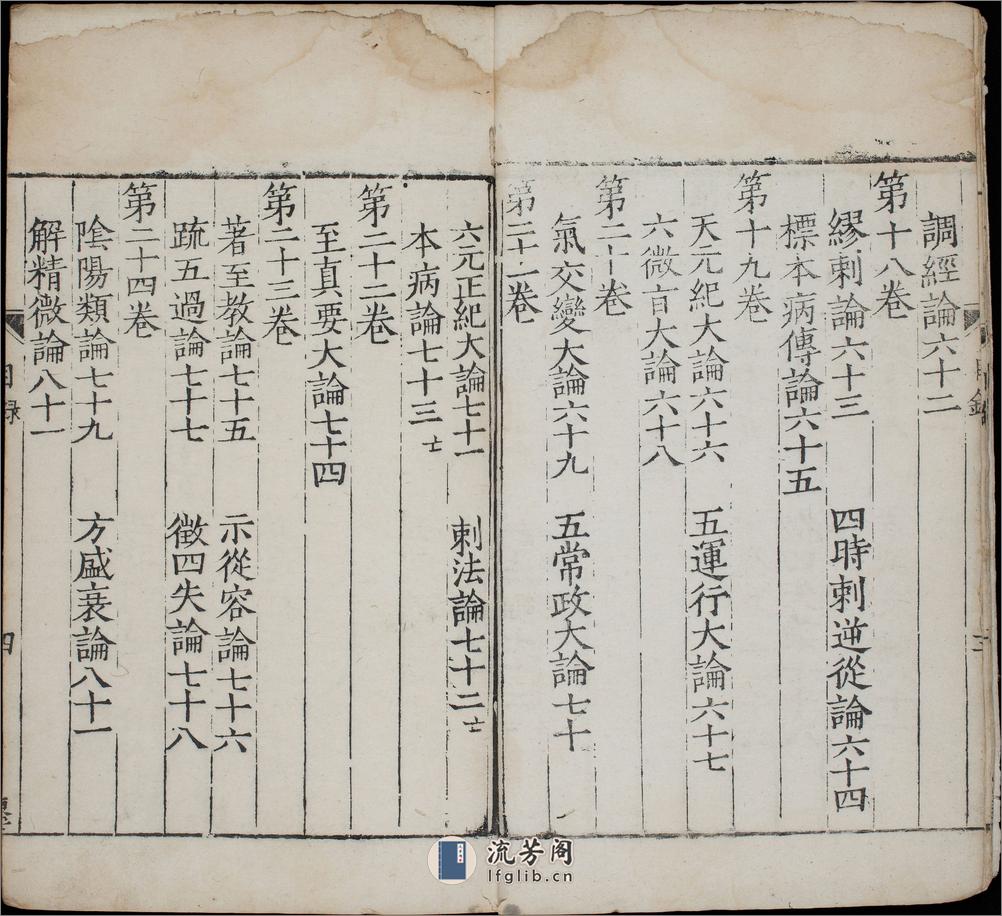 目錄
三
調經論六十二
第十八卷
繆刺論六十三　四時刺逆從論六十四
標本病傳論六十五
第十九卷
天元紀大論六十六　五運行大論六十七
六微旨大論六十八
第二十卷
氣交變大論六十九　五常政大論七十
第二十一卷
六元正紀大論七十一　刺法論七十二亡
本病論七十三亡
第二十二卷
至真要大論七十四
第二十三卷
著至教論七十五　示從容論七十六
疏五過論七十七　徵四失論七十八
第二十四卷
陰陽類論七十九　方盛衰論八十一
解精微論八十一
目錄
四
流芳阁
lfglib.cn